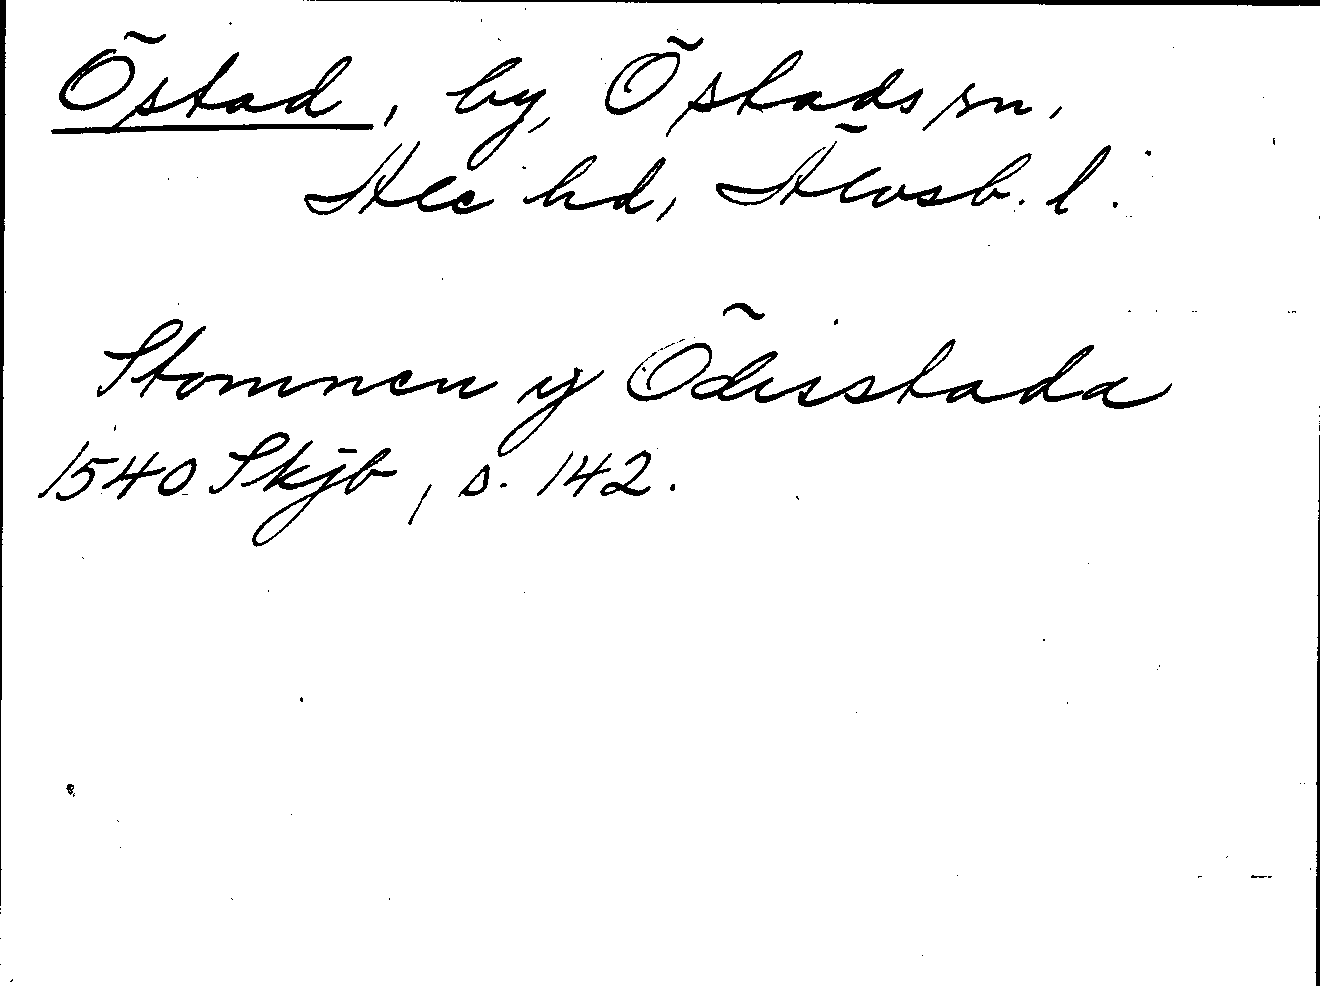 Östad, by, Östads sn.
Ale hd, Älvsb. l.
Stomnen y Ödisstada
1540 Skjb, s. 142.